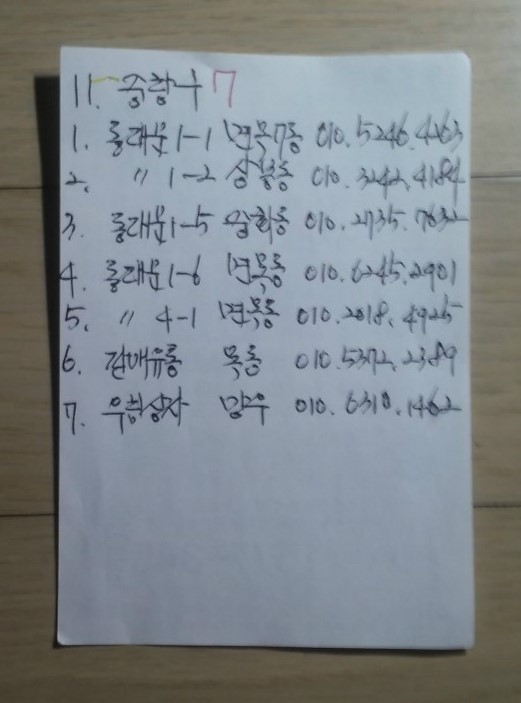 11. 중랑구 7
1. 동대문1-1 면목7동 010.5246.4263
2. 〃 1-2 상봉동 010.3242.4184
3. 동대문1-5 중화동 010.2735.7632
4. 동대문1-6 면목동 010.6245.2901
5. 〃 4-1 면목동 010.2018.4925
6. 판매유통 묵동 010.5372.2389
7. 우림상자 망우 010.6310.1462